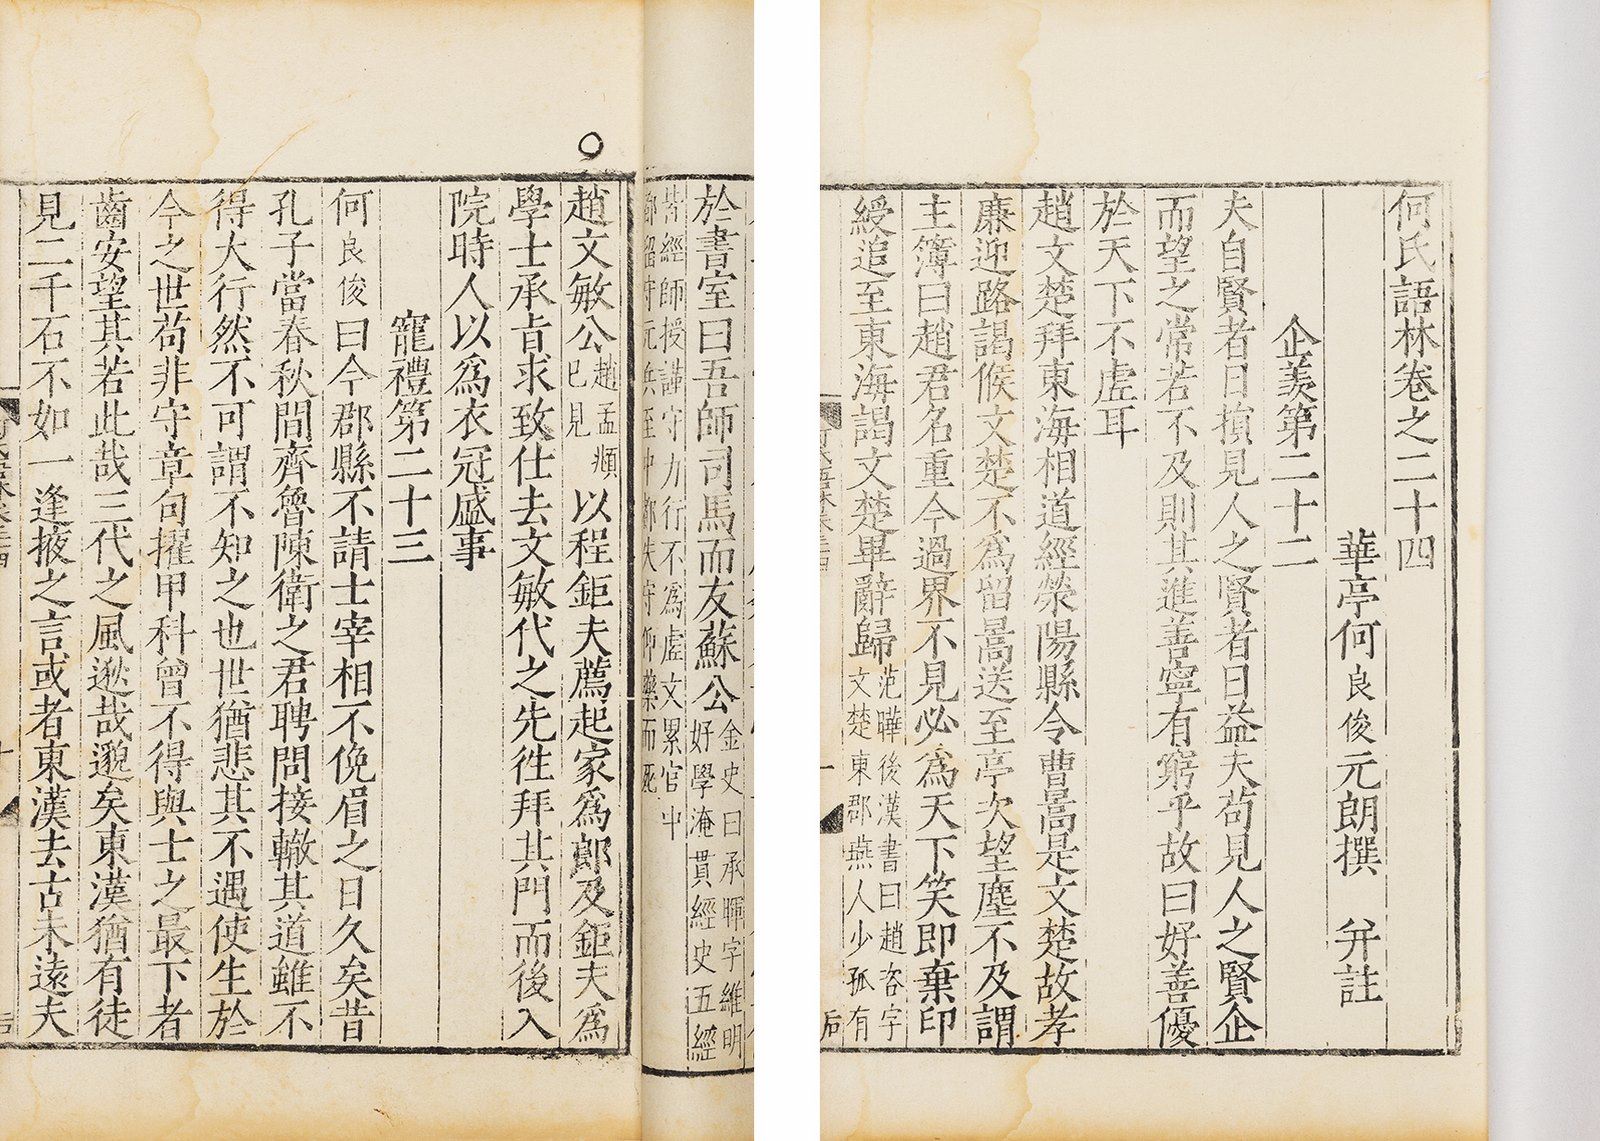 何氏語林卷之二十四
華亭何良俊元朗撰 并註
企羨第二十二
夫自賢者日損見人之賢者日益夫苟見人之賢企
而望之常若不及則其進善寧有窮乎故曰好善優
於天下不虛耳
趙文楚拜東海相道經滎陽縣令曹暠是文楚故孝
廉迎路謁候文楚不爲留暠送至亭次望塵不及謂
主簿曰趙君名重今過界不見必爲天下笑卽棄印
綬追至東海謁文楚畢辭歸范曄後漢書曰趙咨字文楚東郡燕人少孤有
於書室曰吾師司馬而友蘇公金史曰承暉字維明好學淹貫經史五經
皆經師授謹守力行不爲虛文累官中都留守元兵至中都失守仰藥而死
趙文敏公趙孟頫已見以程鉅夫薦起家爲郎及鉅夫爲
學士承旨求致仕去文敏代之先徃拜其門而後入
院時人以爲衣冠盛事
寵禮第二十三
何良俊曰今郡縣不請士宰相不俛眉之日久矣昔
孔子當春秋間齊魯陳衛之君聘問接轍其道雖不
得大行然不可謂不知之也世猶悲其不遇使生於
今之世苟非守章句擢甲科曾不得與士之最下者
齒安望其若此哉三代之風逖哉邈矣東漢猶有徒
見二千石不如一逢掖之言或者東漢去古未遠夫